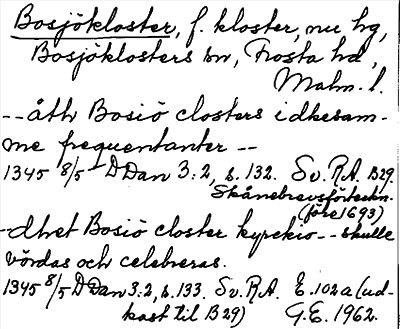 Bosjökloster, f. kloster, nu hg,
Bosjöklosters sn, Frosta hd,
Malm. l.
-- åth Bosiö closters idkesam-
me frequentanter --
1345 8/5 DDan 3:2, s. 132. Sv. R.A. B29.
Skånebrevsförteckn.
(före 1693)
-- dhet Bosiö closter kyrckio -- skulle
vördas och celebreras.
1345 8/5 DDan 3.2, s. 133. Sv. R.A. E. 102a (ud-
kast til B29) G.E. 1962.